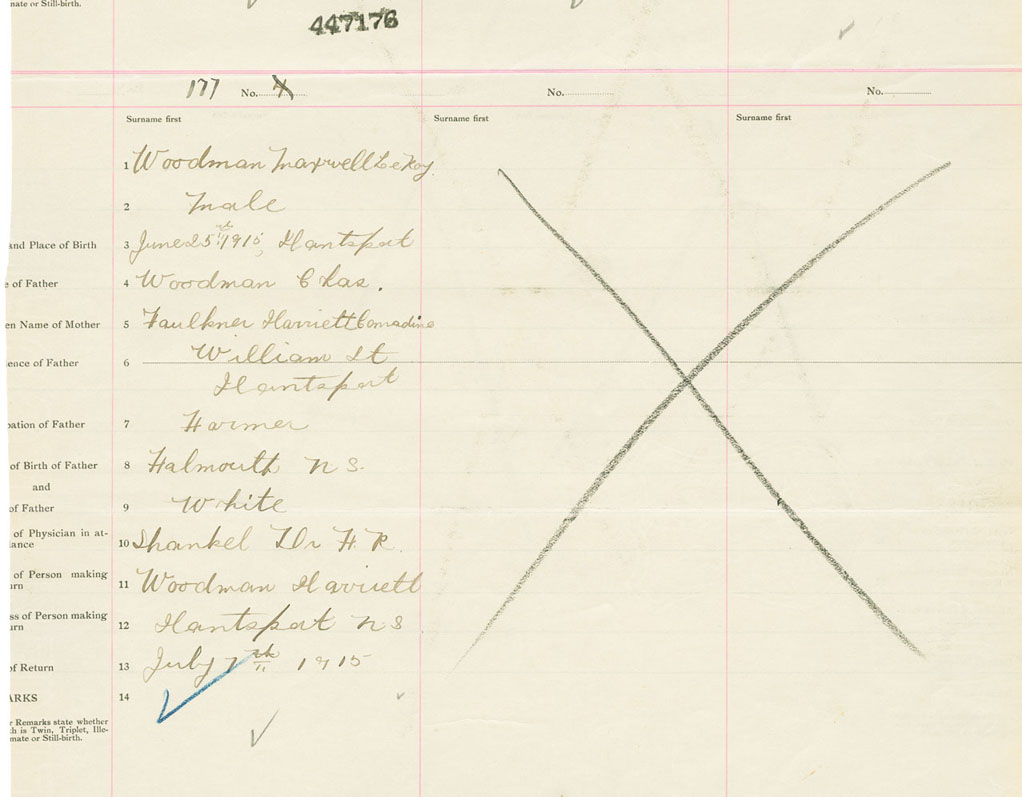 mate or Still-birth.
447176
177 No. 4 No. No.
Surname first Surname first Surname first
1 Woodman Maxwell LeRoy
2 Male
and Place of Birth 3 June 25th 1915, Hantsport
of Father 4 Woodman Chas.
en Name of Mother 5 Faulkner Harriett
ence of Father 6 William St
Hantsport
pation of Father 7 Farmer
of Birth of Father 8 Falmouth N S.
and
of Father 9 White
of Physician in at-
dance 10 Shankel Dr F R.
of Person making
urn 11 Woodman Harriett
ss of Person making
urn 12 Hantsport N S
of Return 13 July 7th 1915
ARKS 14
r Remarks state whether
th is Twin, Triplet, Ille-
mate or Still-birth.